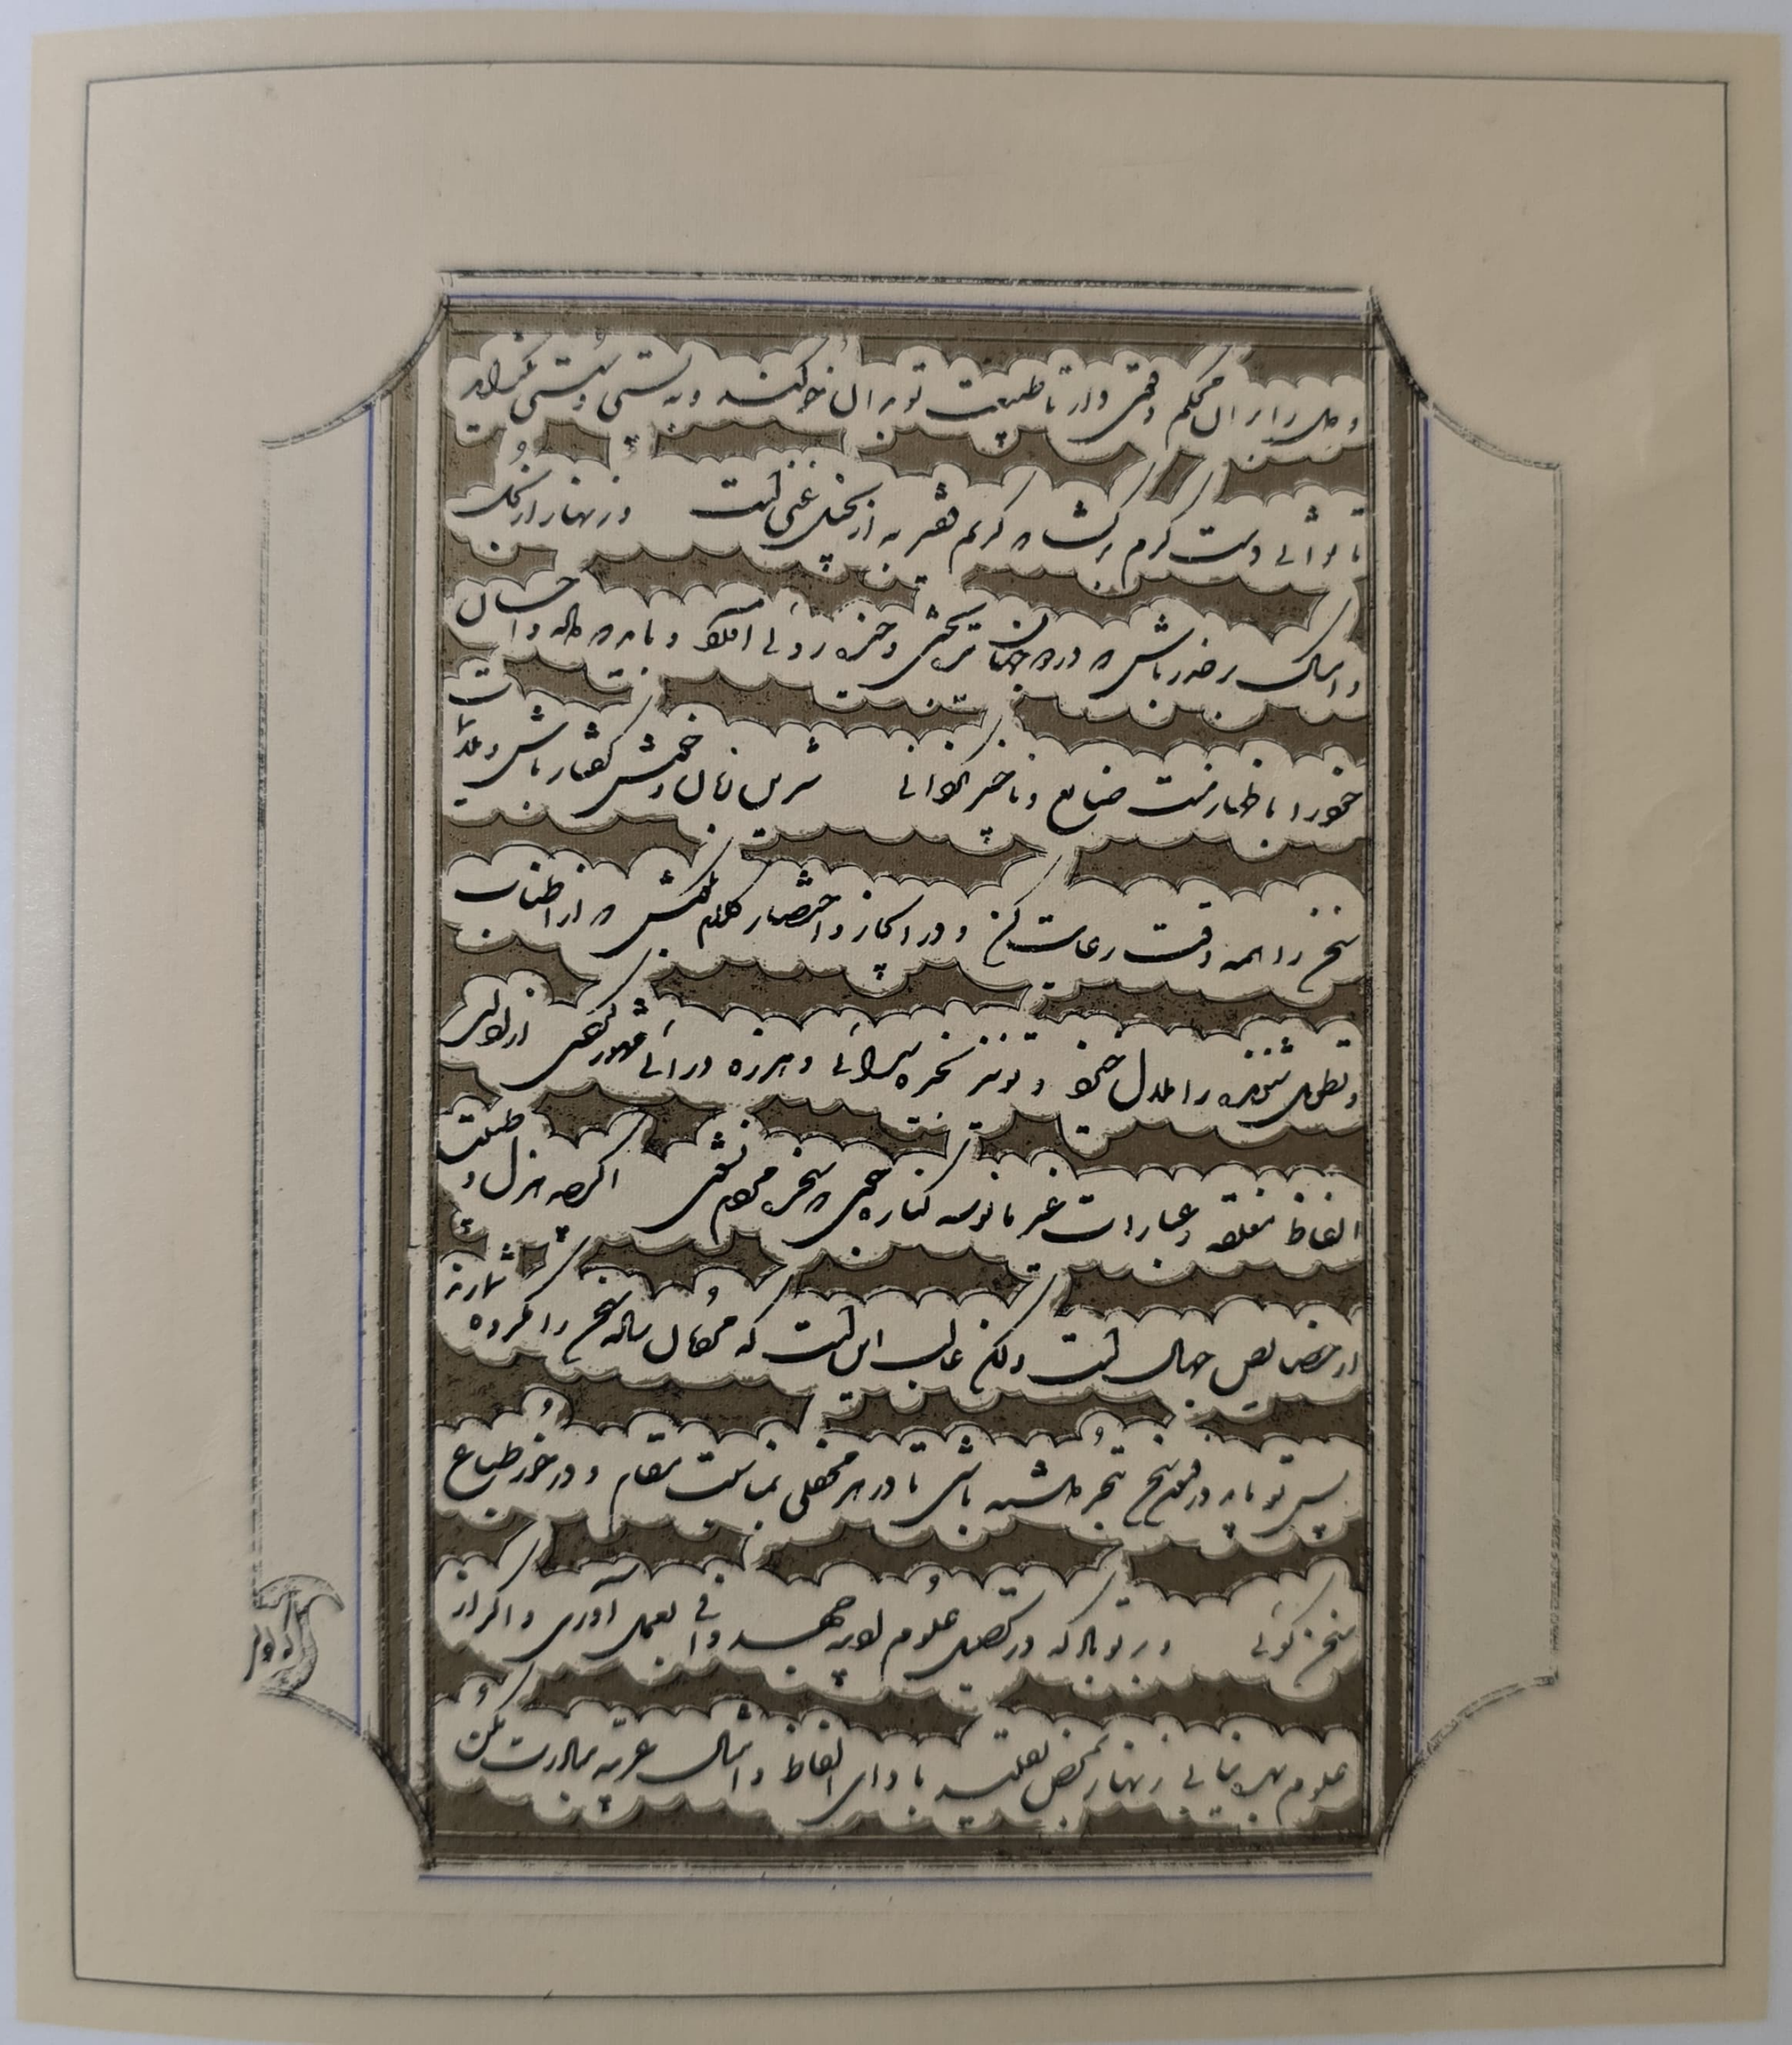 و دل را بر آن محکم و قوی دار تا طبیعت تو بر آن خو کند و به سستی و پستی نگراید
تا توانی دست کرم برگشا که کریم فقیر به از بخیل غنی است و زنهار از بخل
و امساک بر حذر باش که در دو جهان بدبختی و خیره روئی آورد و باید که داده و احسان
خود را باظهار منت ضایع و ناچیز نگردانی شیرین زبان و خوش گفتار باش و ملایمت
سخن را همه وقت رعایت کن و در ایجاز و اختصار کلام بکوش که از اطناب
و تطویل شنونده را ملال خیزد و تو نیز بخیره سرائی و هرزه درائی مشهور گردی از ایراد
الفاظ مغلقه و عبارات غیر مانوسه کناره جوی که سخره مردم نشوی اگرچه هزل و طیبت
از خصایص جهال است ولکن غالب این است که مردمان ساده سخن را مکروه شمارند
پس تو باید در فنون سخن تبحر داشته باشی تا در هر محفلی بمناسبت مقام و در خور طباع
سخن گوئی و بر تو باد که در تحصیل علوم ادبیه جهد وافی بعمل آوری و اگر از
علوم بهره نیابی زنهار بمحض تقلید بادای الفاظ و امثال عربیه مبادرت مکن